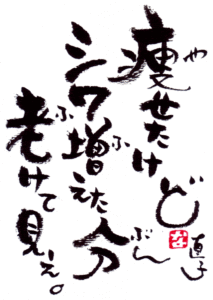 や
痩せたけど
ふ ぶん
シワ増えた分
ふ
老けて見え。
直子